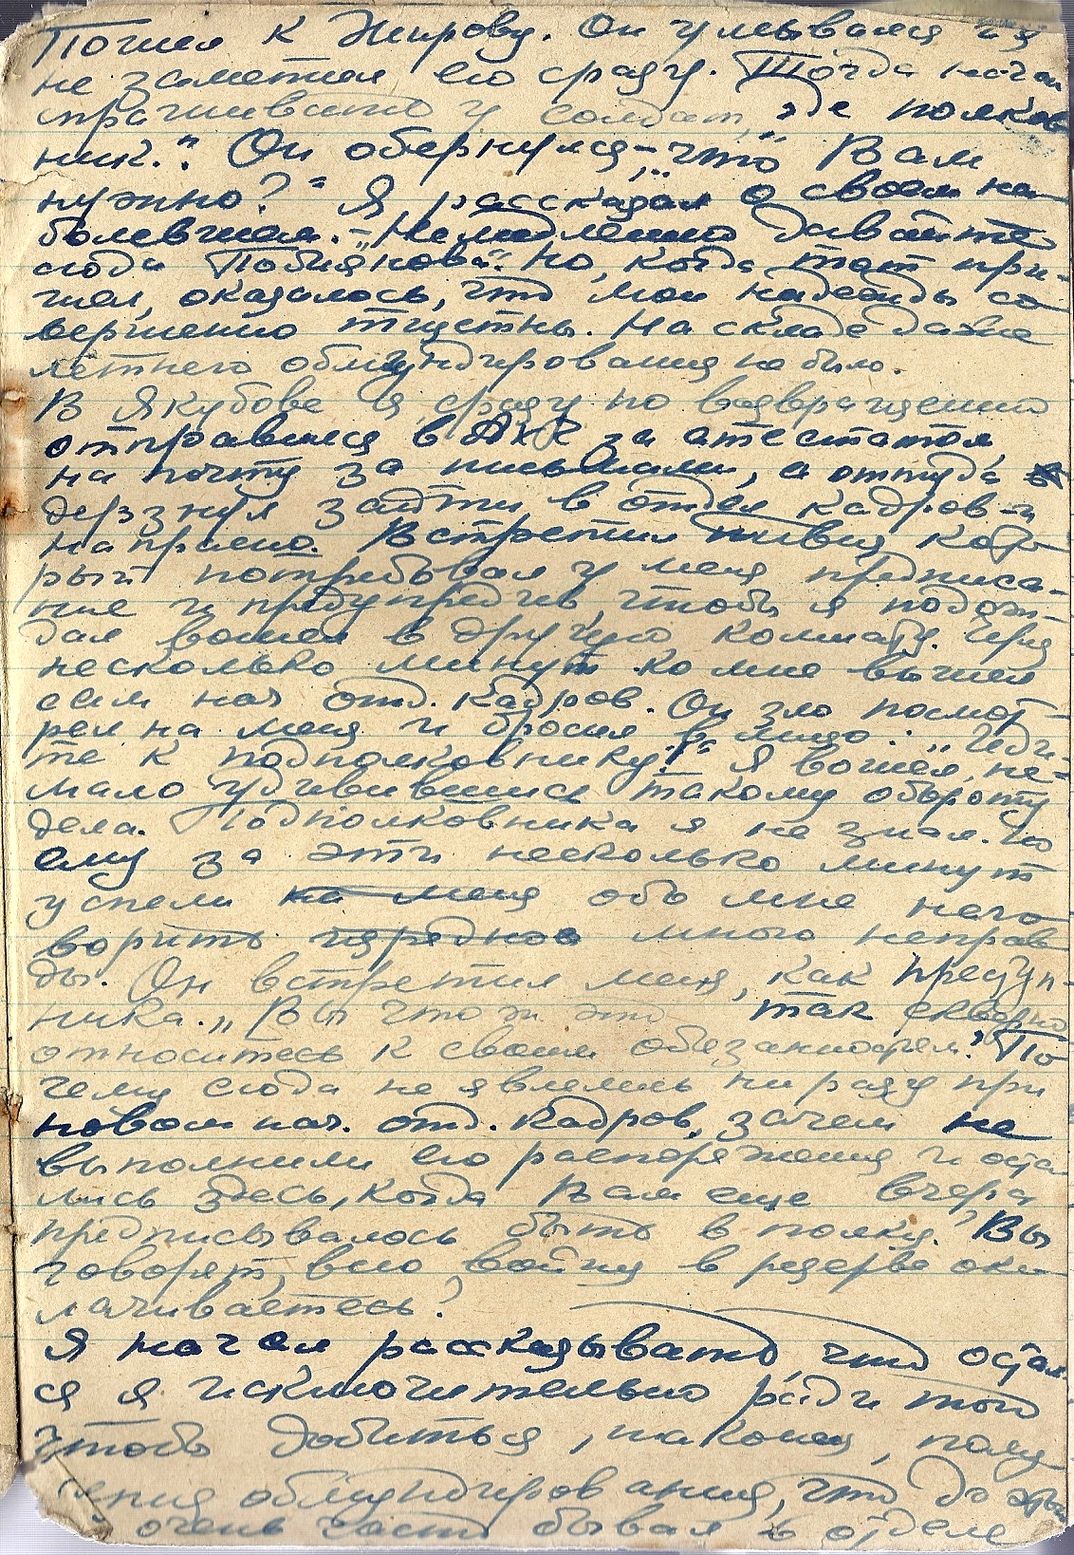 Пошел к Жирову. Он умывался и я
не заметил его сразу. Тогда начал
спрашивать у солдат, „где полков
ник." Он обернулся – „что Вам
нужно?" Я рассказал о своем на
болевшем. – „Немедленно давайте
сюда Побиянова". Но, когда тот при-
шел, оказалось, что мои надежды со
вершенно тщетны. На складе даже
летнего обмундирования не было.
В Якубове я сразу по возвращению
отправился в АХЧ за атестатом,
на почту за письмами, а оттуда
дерзнул зайти в отдел кадров и
напрямо. Встретил кото
рый потребовал у меня предписа-
ние и предупредив, чтобы я подож-
дал вошел в другую комнату. Через
несколько минут ко мне вышел
сам нач отд. кадров. Он зло посмот-
рел на меня и бросил в лицо: „Иди
те к подполковнику!" Я вошел, не-
мало удивившись такому обороту
дела. Подполковника я не знал. Но
ему за эти несколько минут
успели на меня обо мне наго
ворить изрядно много неправ
ды. Он встретил меня, как преступ-
ника. „Вы что ж это так скверно
относитесь к своим обезанностям? По
чему сюда не явлелись ни разу при
новом нач. отд. кадров, зачем не
выполнили его распоряжения и оста
лись здесь, когда Вам еще вчера
предписывалось быть в полку? Вы
говорят, всю войну в резерве око
лачиваетесь?
Я начал рассказывать, что остал
ся я исключительно ради того
чтобы добиться, наконец, полу
чения обмундирования, что до
очень часто бывал в отделе